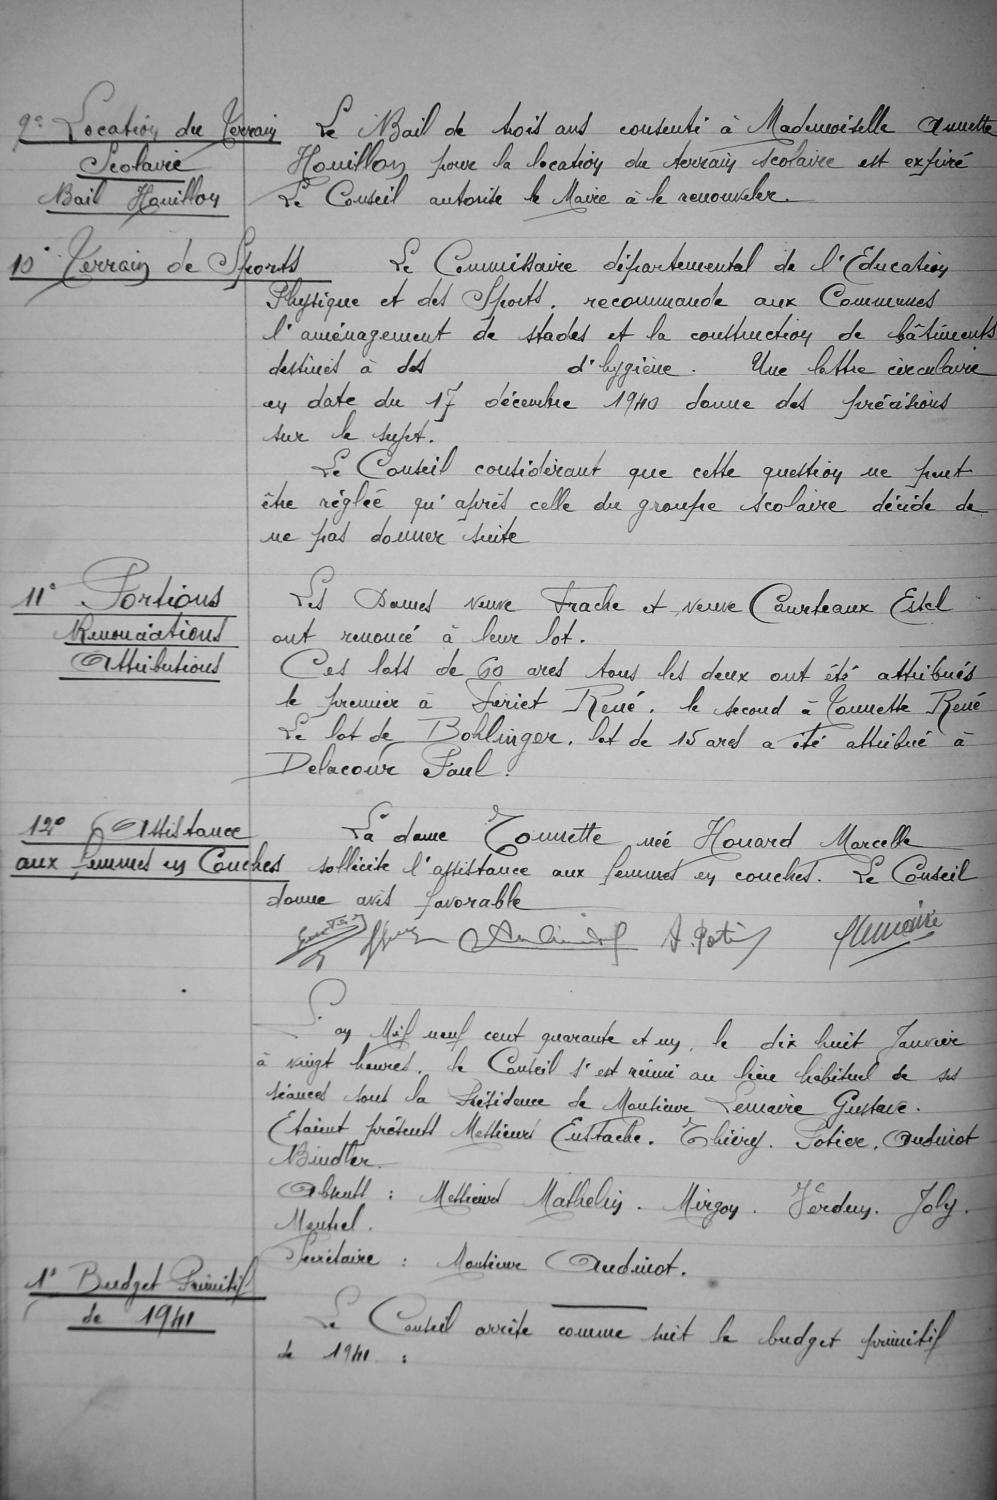 9° Location du Terrain
Scolaire
Bail Houillon
Le Bail de trois ans consenti à Mademoiselle Annette
Houillon pour la location du terrain scolaire est expiré
Le Conseil autorise le Maire à le renouveler.
10° Terrain de Sports
Le Commissaire départemental de l'Education
Physique et des Sports. recommande aux Communes
l'aménagement de stades et la construction de bâtiments
destinés à des d'hygiène. Une lettre circulaire
en date du 17 décembre 1940 donne des précisions
sur le sujet.
Le Conseil considérant que cette question ne peut
être réglée qu'après celle du groupe scolaire décide de
ne pas donner suite
11° Portions
Renonciations
Attributions
Les Dames veuve Frache et veuve Courteaux Estel
ont renoncé à leur lot.
Ces lots de 60 ares tous les deux ont été attribués
le premier à Feriet René. le second à Tonnette René
Le lot de Bohlinger. lot de 15 ares a été attribué à
Delacour Paul.
12° Assistance
aux femmes en Couches
La dame Tonnette née Houard Marcelle
sollicite l'assistance aux femmes en couches. Le Conseil
donne avis favorable
A. Potier Lemaire
L'an Mil neuf cent quarante et un, le dix huit Janvier
à vingt heures, le Conseil s'est réuni au lieu habituel de ses
séances sous la Présidence de Monsieur Lemaire Gustave.
Etaient présents Messieurs Eustache. Thiéry. Potier. Audinot
Bindler.
Absents : Messieurs Mathelin. Mirgon. Férduy. Joly.
Mentrel.
Secrétaire : Monsieur Audinot.
1° Budget Primitif
de 1941
Le Conseil arrête comme suit le budget primitif
de 1941 :